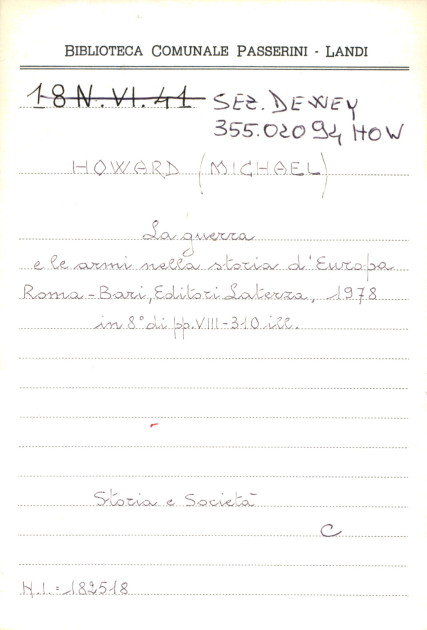 BIBLIOTECA COMUNALE PASSERINI - LANDI
18 N. VI. 41 SEZ. DEWEY
355.020 94 HOW
HOWARD (MICHAEL)
La guerra
e le armi nella storia d'Europa
Roma - Bari, Editori Laterza, 1978
in 8° di pp. VIII - 310 ill.
Storia e Società
C
N.I. = 182518